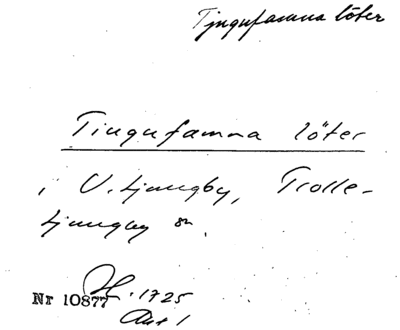 Tjugufamna löter
Tiugufamna löter
i V. Ljungby, Trolle-
Ljungby sn.
Nr 10877 H. 1725
Akt 1